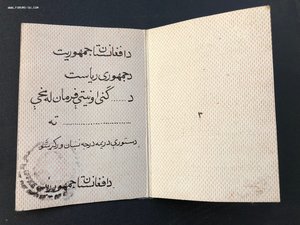 www.forums-su.com
د افغانستان جمهوریت
د جمهوری ریاست
د ...... گڼې او نیټې فرمان له مخې
................ ته
د ستوری دریمه درجه نښان ورکړ شو
د افغانستان جمهور رئیس
۳